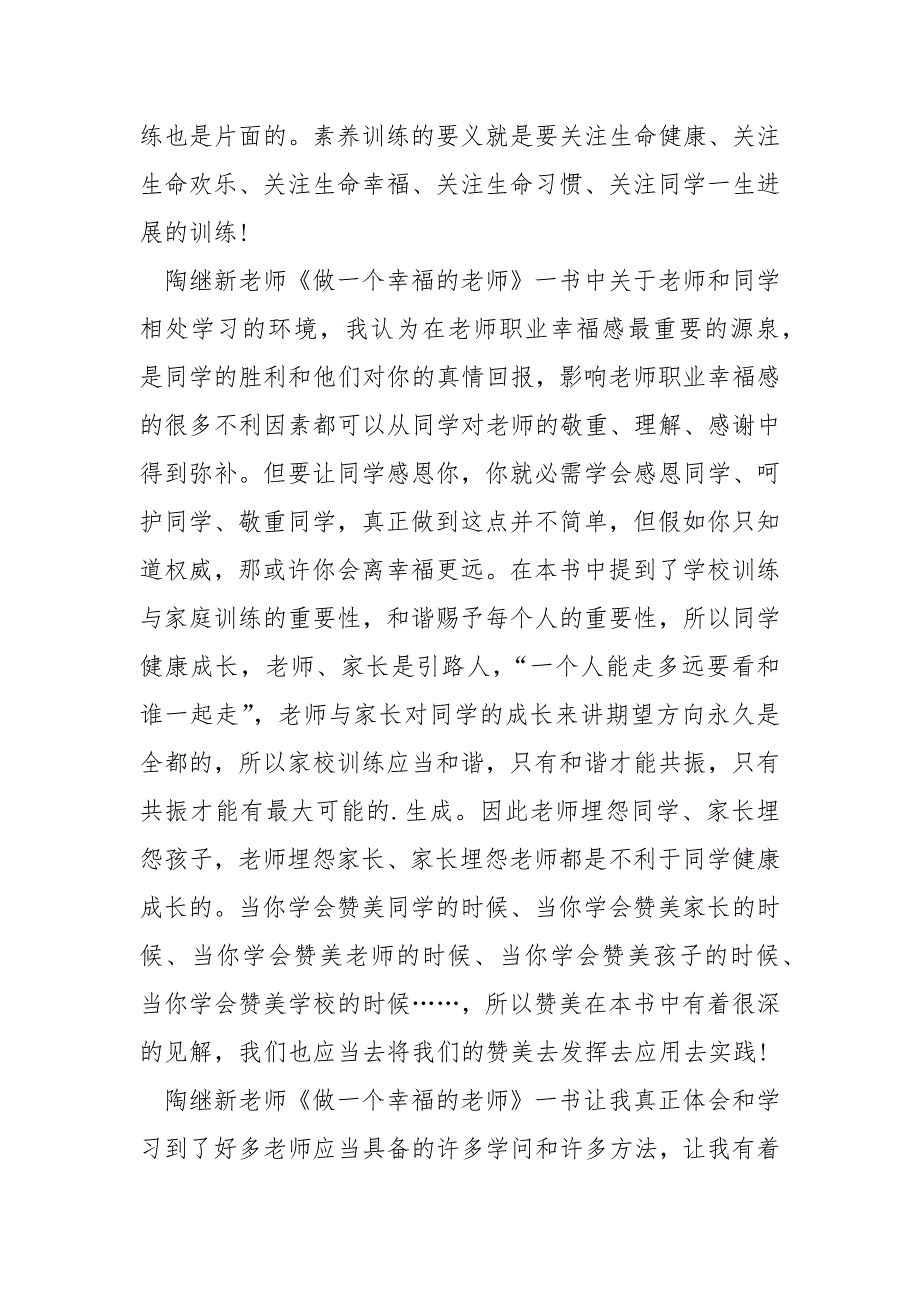 练也是片面的。素养训练的要义就是要关注生命健康、关注
生命欢乐、关注生命幸福、关注生命习惯、关注同学一生进
展的训练!
陶继新老师《做一个幸福的老师》一书中关于老师和同学
相处学习的环境，我认为在老师职业幸福感最重要的源泉，
是同学的胜利和他们对你的真情回报，影响老师职业幸福感
的很多不利因素都可以从同学对老师的敬重、理解、感谢中
得到弥补。但要让同学感恩你，你就必需学会感恩同学、呵
护同学、敬重同学，真正做到这点并不简单，但假如你只知
道权威，那或许你会离幸福更远。在本书中提到了学校训练
与家庭训练的重要性，和谐赐予每个人的重要性，所以同学
健康成长，老师、家长是引路人，“一个人能走多远要看和
谁一起走”，老师与家长对同学的成长来讲期望方向永久是
全都的，所以家校训练应当和谐，只有和谐才能共振，只有
共振才能有最大可能的.生成。因此老师埋怨同学、家长埋
怨孩子，老师埋怨家长、家长埋怨老师都是不利于同学健康
成长的。当你学会赞美同学的时候、当你学会赞美家长的时
候、当你学会赞美老师的时候、当你学会赞美孩子的时候、
当你学会赞美学校的时候……，所以赞美在本书中有着很深
的见解，我们也应当去将我们的赞美去发挥去应用去实践!
陶继新老师《做一个幸福的老师》一书让我真正体会和学
习到了好多老师应当具备的许多学问和许多方法，让我有着